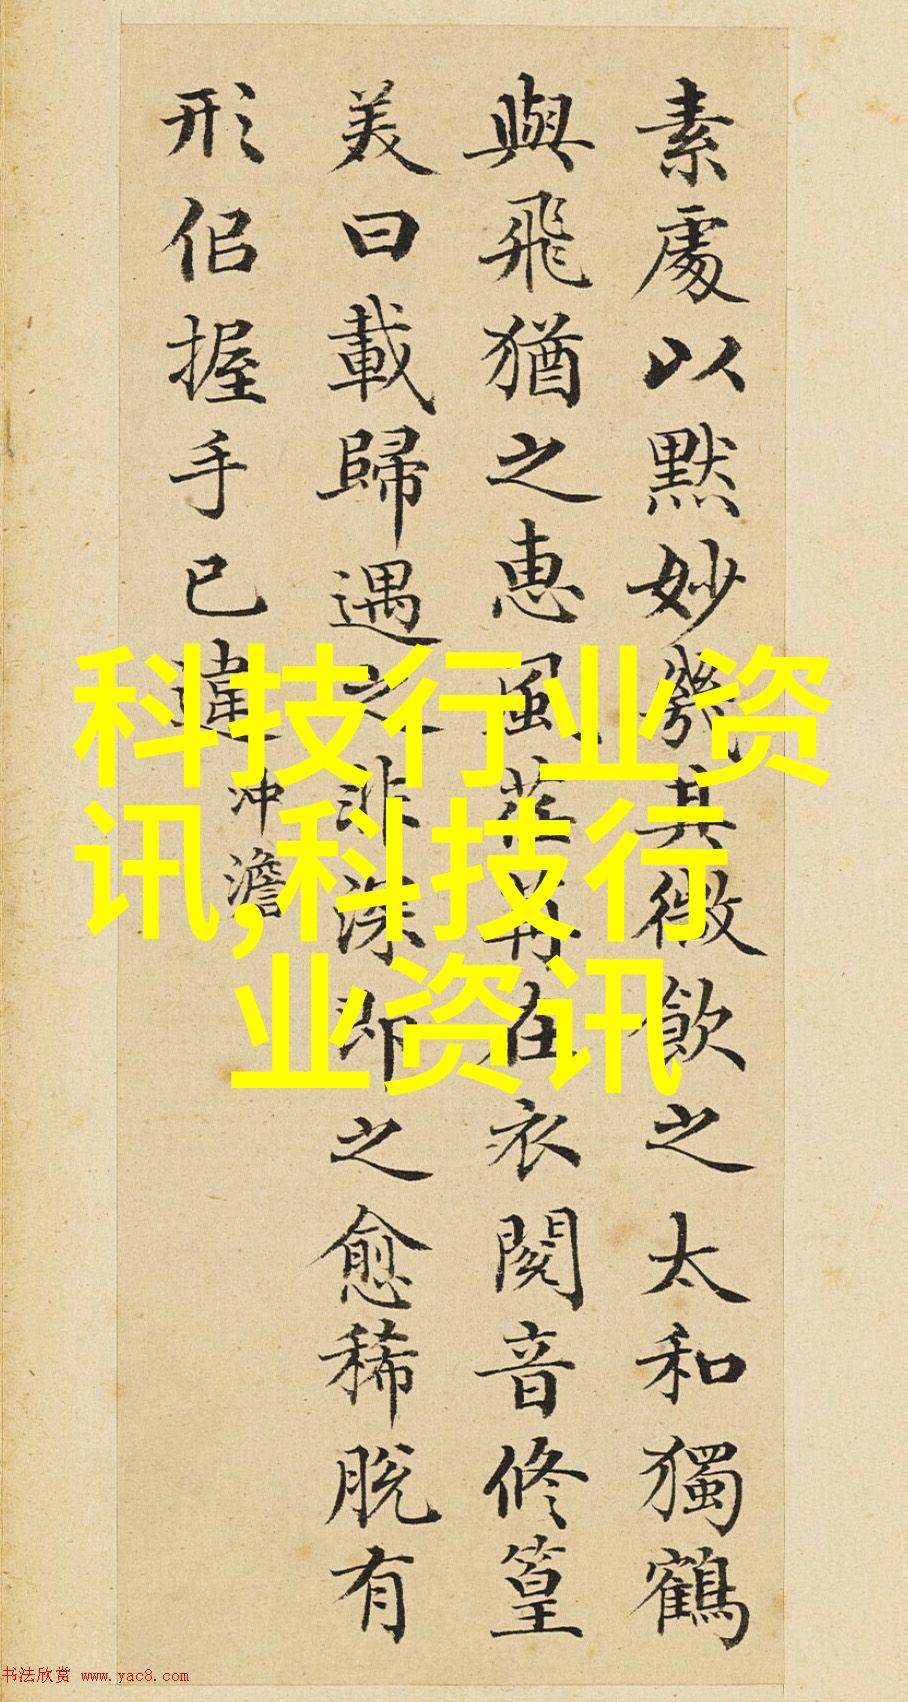 素處以默妙機其微飲之太和獨鶴
與飛猶之惠風荏苒在衣閱音修篁
美曰載歸遇之非深即之愈稀脫有
形似握手已違
冲澹
科技行业资
讯,科技行
业资讯
书法欣赏 www.yac8.com